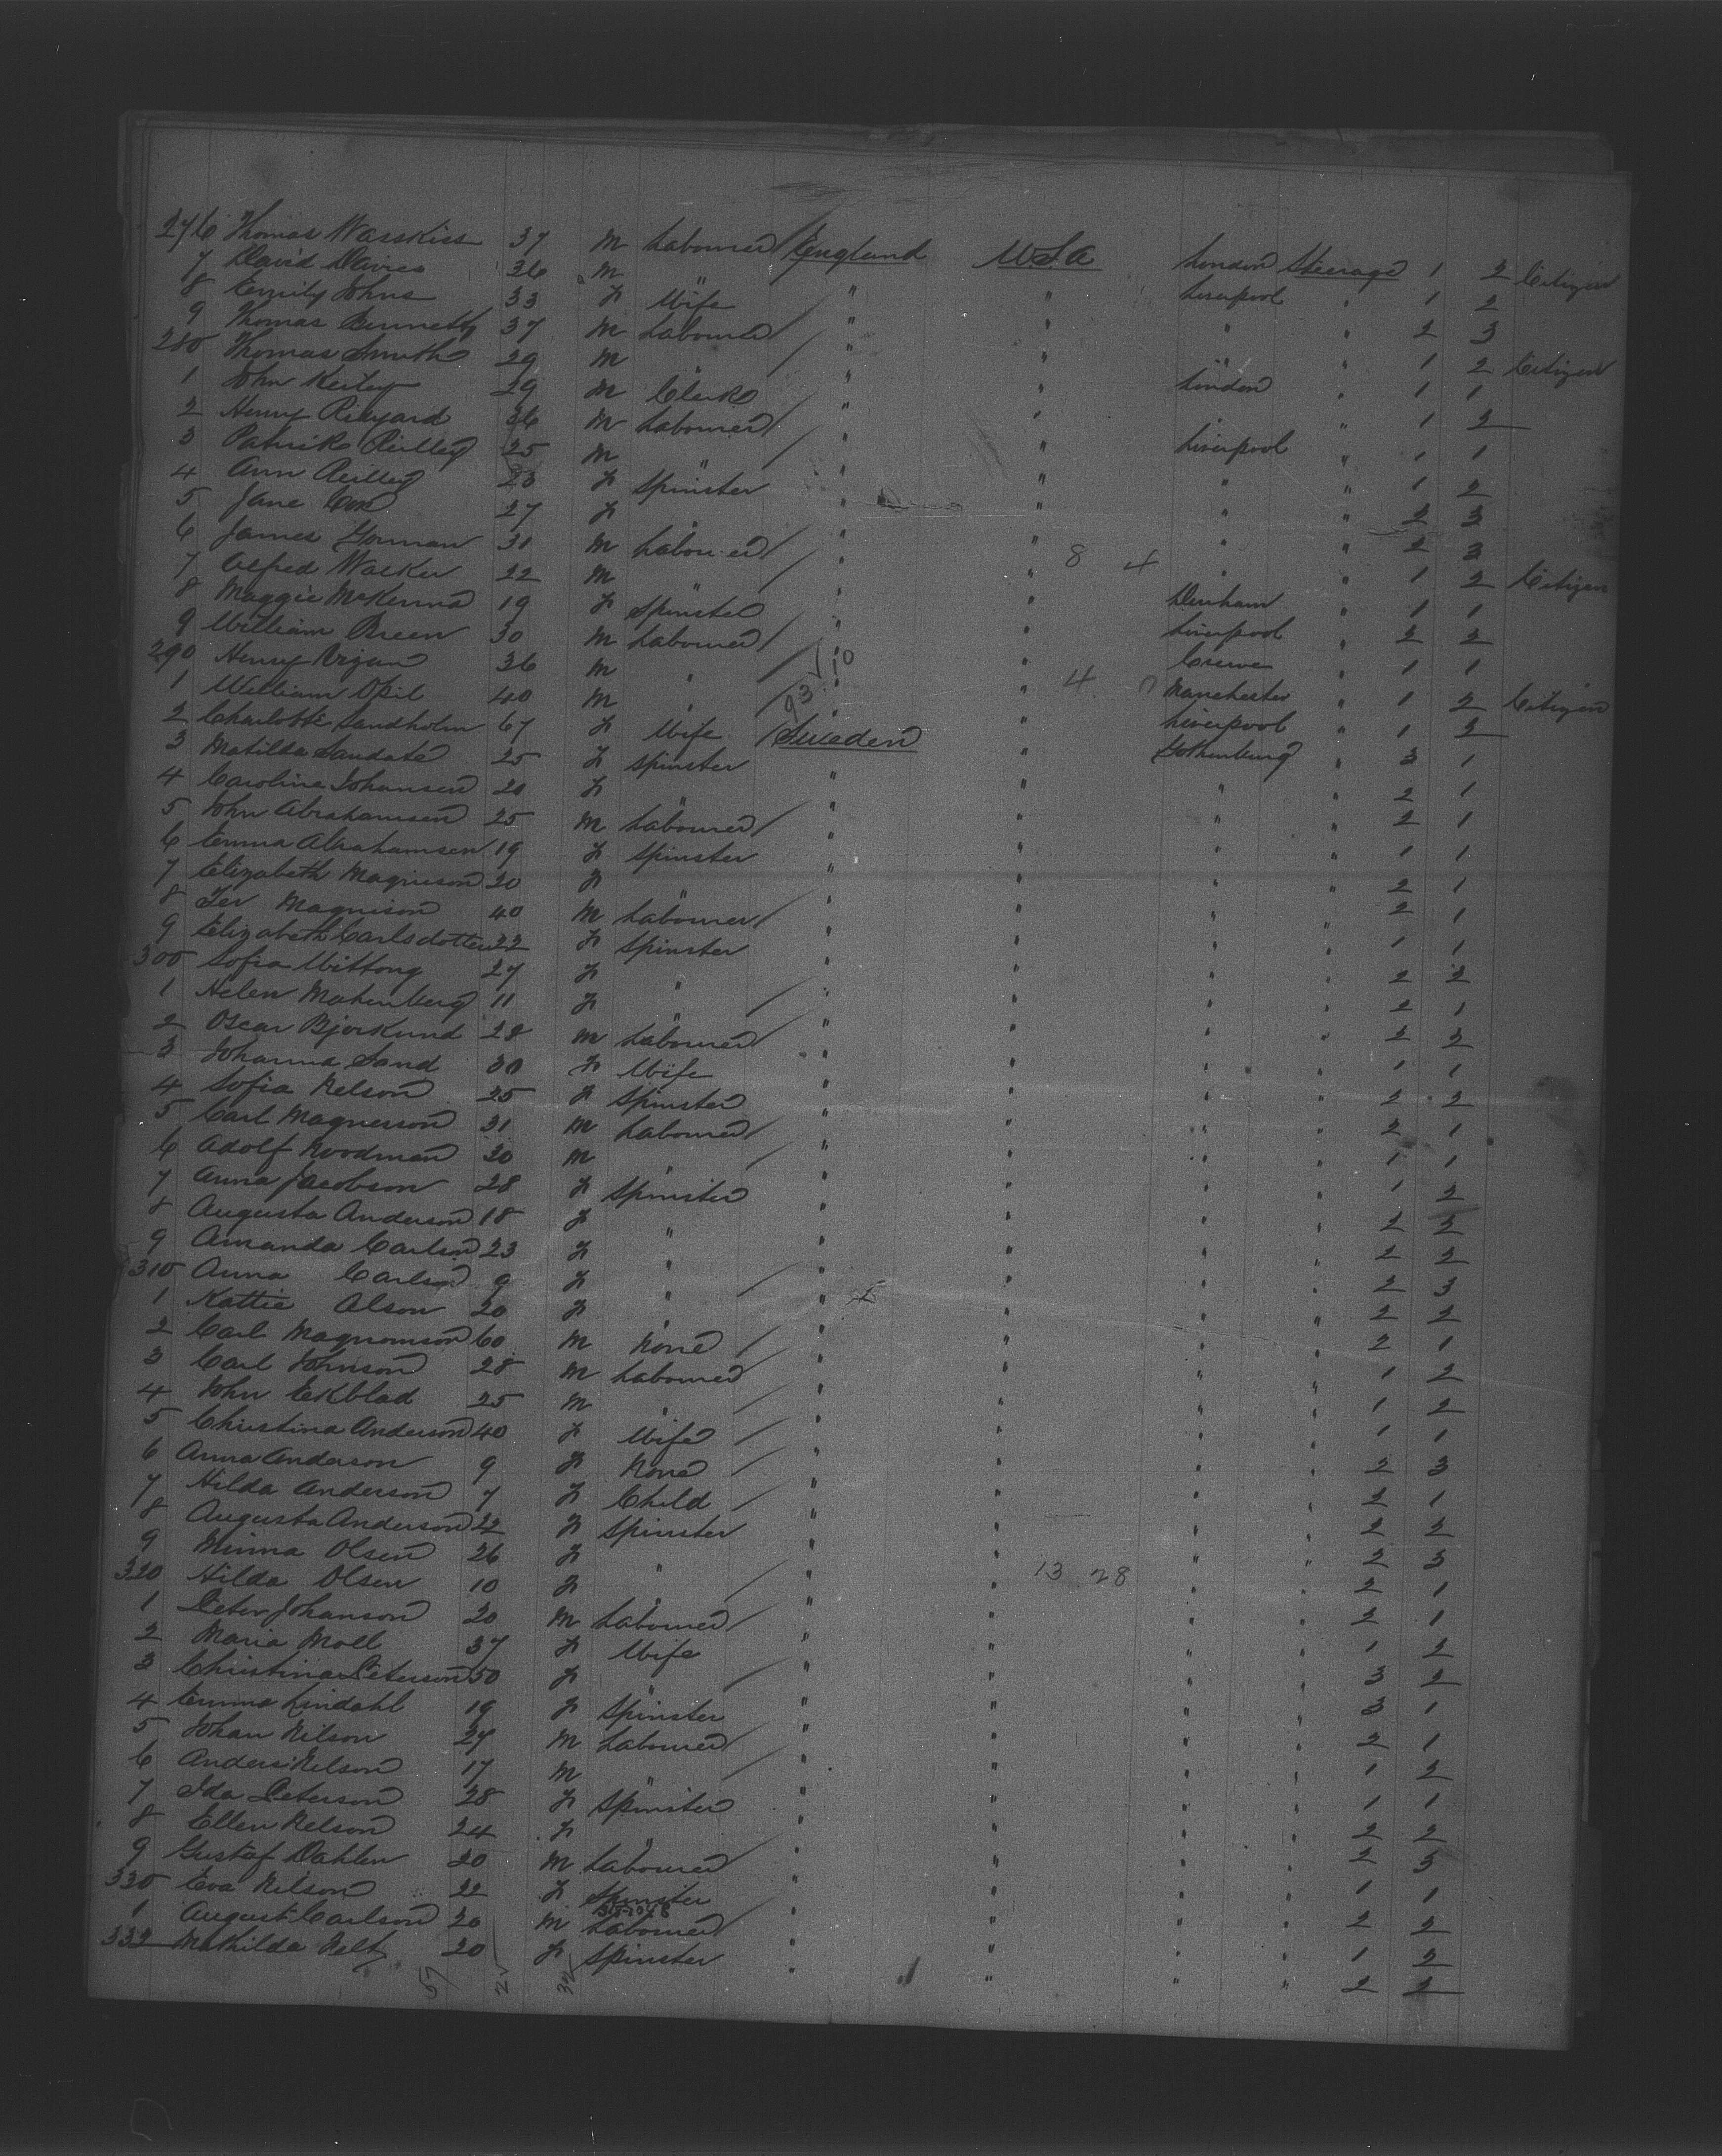 276 Thomas 37 M Labourer England U.S.A London Steerage 1 2 Citizen
7 David Davies 36 M " " " Liverpool " 1 2
8 Emily Johns 33 F Wife " " " " 2 3
9 Thomas Bennett 37 M Labourer " " " " 1 2 Citizen
280 Thomas Smith 29 M " " " London " 1 1
1 John Keiley 29 M Clerk " " " " 1 2
2 Henry 36 M Labourer " " Liverpool " 1 1
3 Patrick Reilley 25 M " " " " " 1 2
4 Ann Reilley 23 F Spinster " " " " 2 3
5 Jane Cox 27 F " " " " " 2 3
6 James Gorman 31 M Labourer " " " " 1 2 Citizen
7 Alfred Walker 22 M " " " Denham " 1 1
8 Maggie McKenna 19 F Spinster " " Liverpool " 2 2
9 William Breen 30 M Labourer " " Crewe " 1 1
290 Henry 36 M " " " Manchester " 1 2 Citizen
1 William 40 M " " " Liverpool " 1 2
2 Charlotte Sandholm 67 F Wife Sweden " Gothenburg " 3 1
3 Matilda 25 F Spinster " " " " 2 1
4 Caroline Johansen 20 F " " " " " 2 1
5 John Abrahamsen 25 M Labourer " " " " 1 1
6 Emma Abrahamsen 19 F Spinster " " " " 2 1
7 Elizabeth Magnuson 20 F " " " " " 2 1
8 Magnison 40 M Labourer " " " " 1 1
9 Elizabeth Carlsdotter 22 F Spinster " " " " 2 2
300 Sofia 27 F " " " " " 2 1
1 Helen 11 F " " " " " 2 2
2 Oscar Bjorklund 28 M Labourer " " " " 1 1
3 Johanna Sand 30 F Wife " " " " 2 2
4 Sofia Nelson 25 F Spinster " " " " 2 1
5 Carl Magnusson 31 M Labourer " " " " 1 1
6 Adolf Noodman 20 M " " " " " 1 2
7 Anna Jacobson 28 F Spinster " " " " 2 2
8 Augusta Anderson 18 F " " " " " 2 2
9 Amanda Carlson 23 F " " " " " 2 3
310 Anna Carlson 9 F " " " " " 2 2
1 Kattie Alson 20 F " " " " " 2 1
2 Carl Magnomson 60 M None " " " " 1 2
3 Carl Johnson 28 M Labourer " " " " 1 2
4 John Ekblad 25 M " " " " " 1 1
5 Christina Anderson 40 F Wife " " " " 2 3
6 Anna Anderson 9 F None " " " " 2 1
7 Hilda Anderson 7 F Child " " " " 2 2
8 Augusta Anderson 22 F Spinster " " " " 2 3
9 Minna Olsen 26 F " " " " " 2 1
320 Hilda Olsen 10 F " " " " " 2 1
1 Peter Johanson 20 M Labourer " " " " 1 2
2 Maria Moll 37 F Wife " " " " 3 2
3 Christina Peterson 50 F " " " " " 3 1
4 Emma Lindahl 19 F Spinster " " " " 2 1
5 Johan Nilson 27 M Labourer " " " " 1 2
6 Anders Nelson 17 M " " " " " 1 1
7 Ida Peterson 28 F Spinster " " " " 2 2
8 Ellen Nelson 24 F " " " " " 2 3
9 Gustaf Dahlen 20 M Labourer " " " " 1 1
330 Eva Nilson 22 F Spinster " " " " 2 2
1 August Carlson 20 M Labourer " " " " 1 2
332 Mathilda 20 F Spinster " " " " 2 2